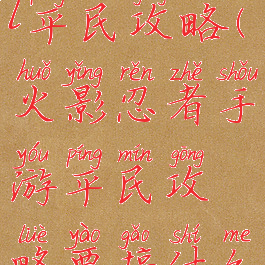 (平民攻略(
huǒ yǐng rěn zhě shǒu
火影忍者手
yóu píng mín gōng
游平民攻
lüè yào gǎo shí me
略要搞什么